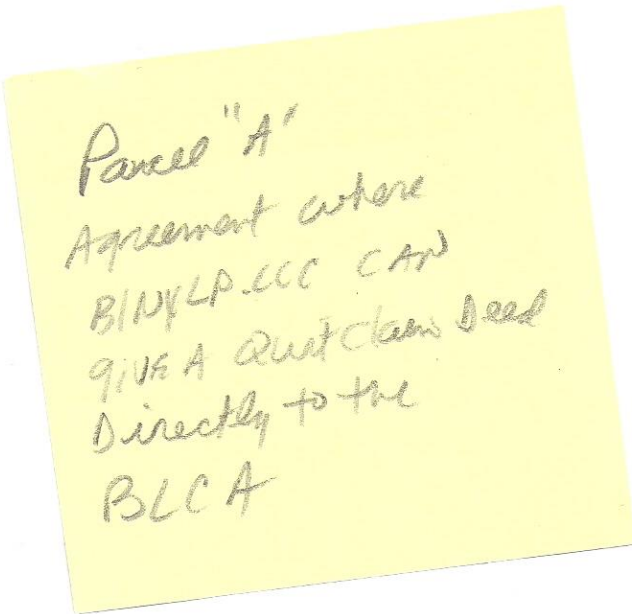 Parcel "A"
Agreement where
BINYLP.LLC CAN
giVE A Quit Claim Deed
Directly to the
BLCA